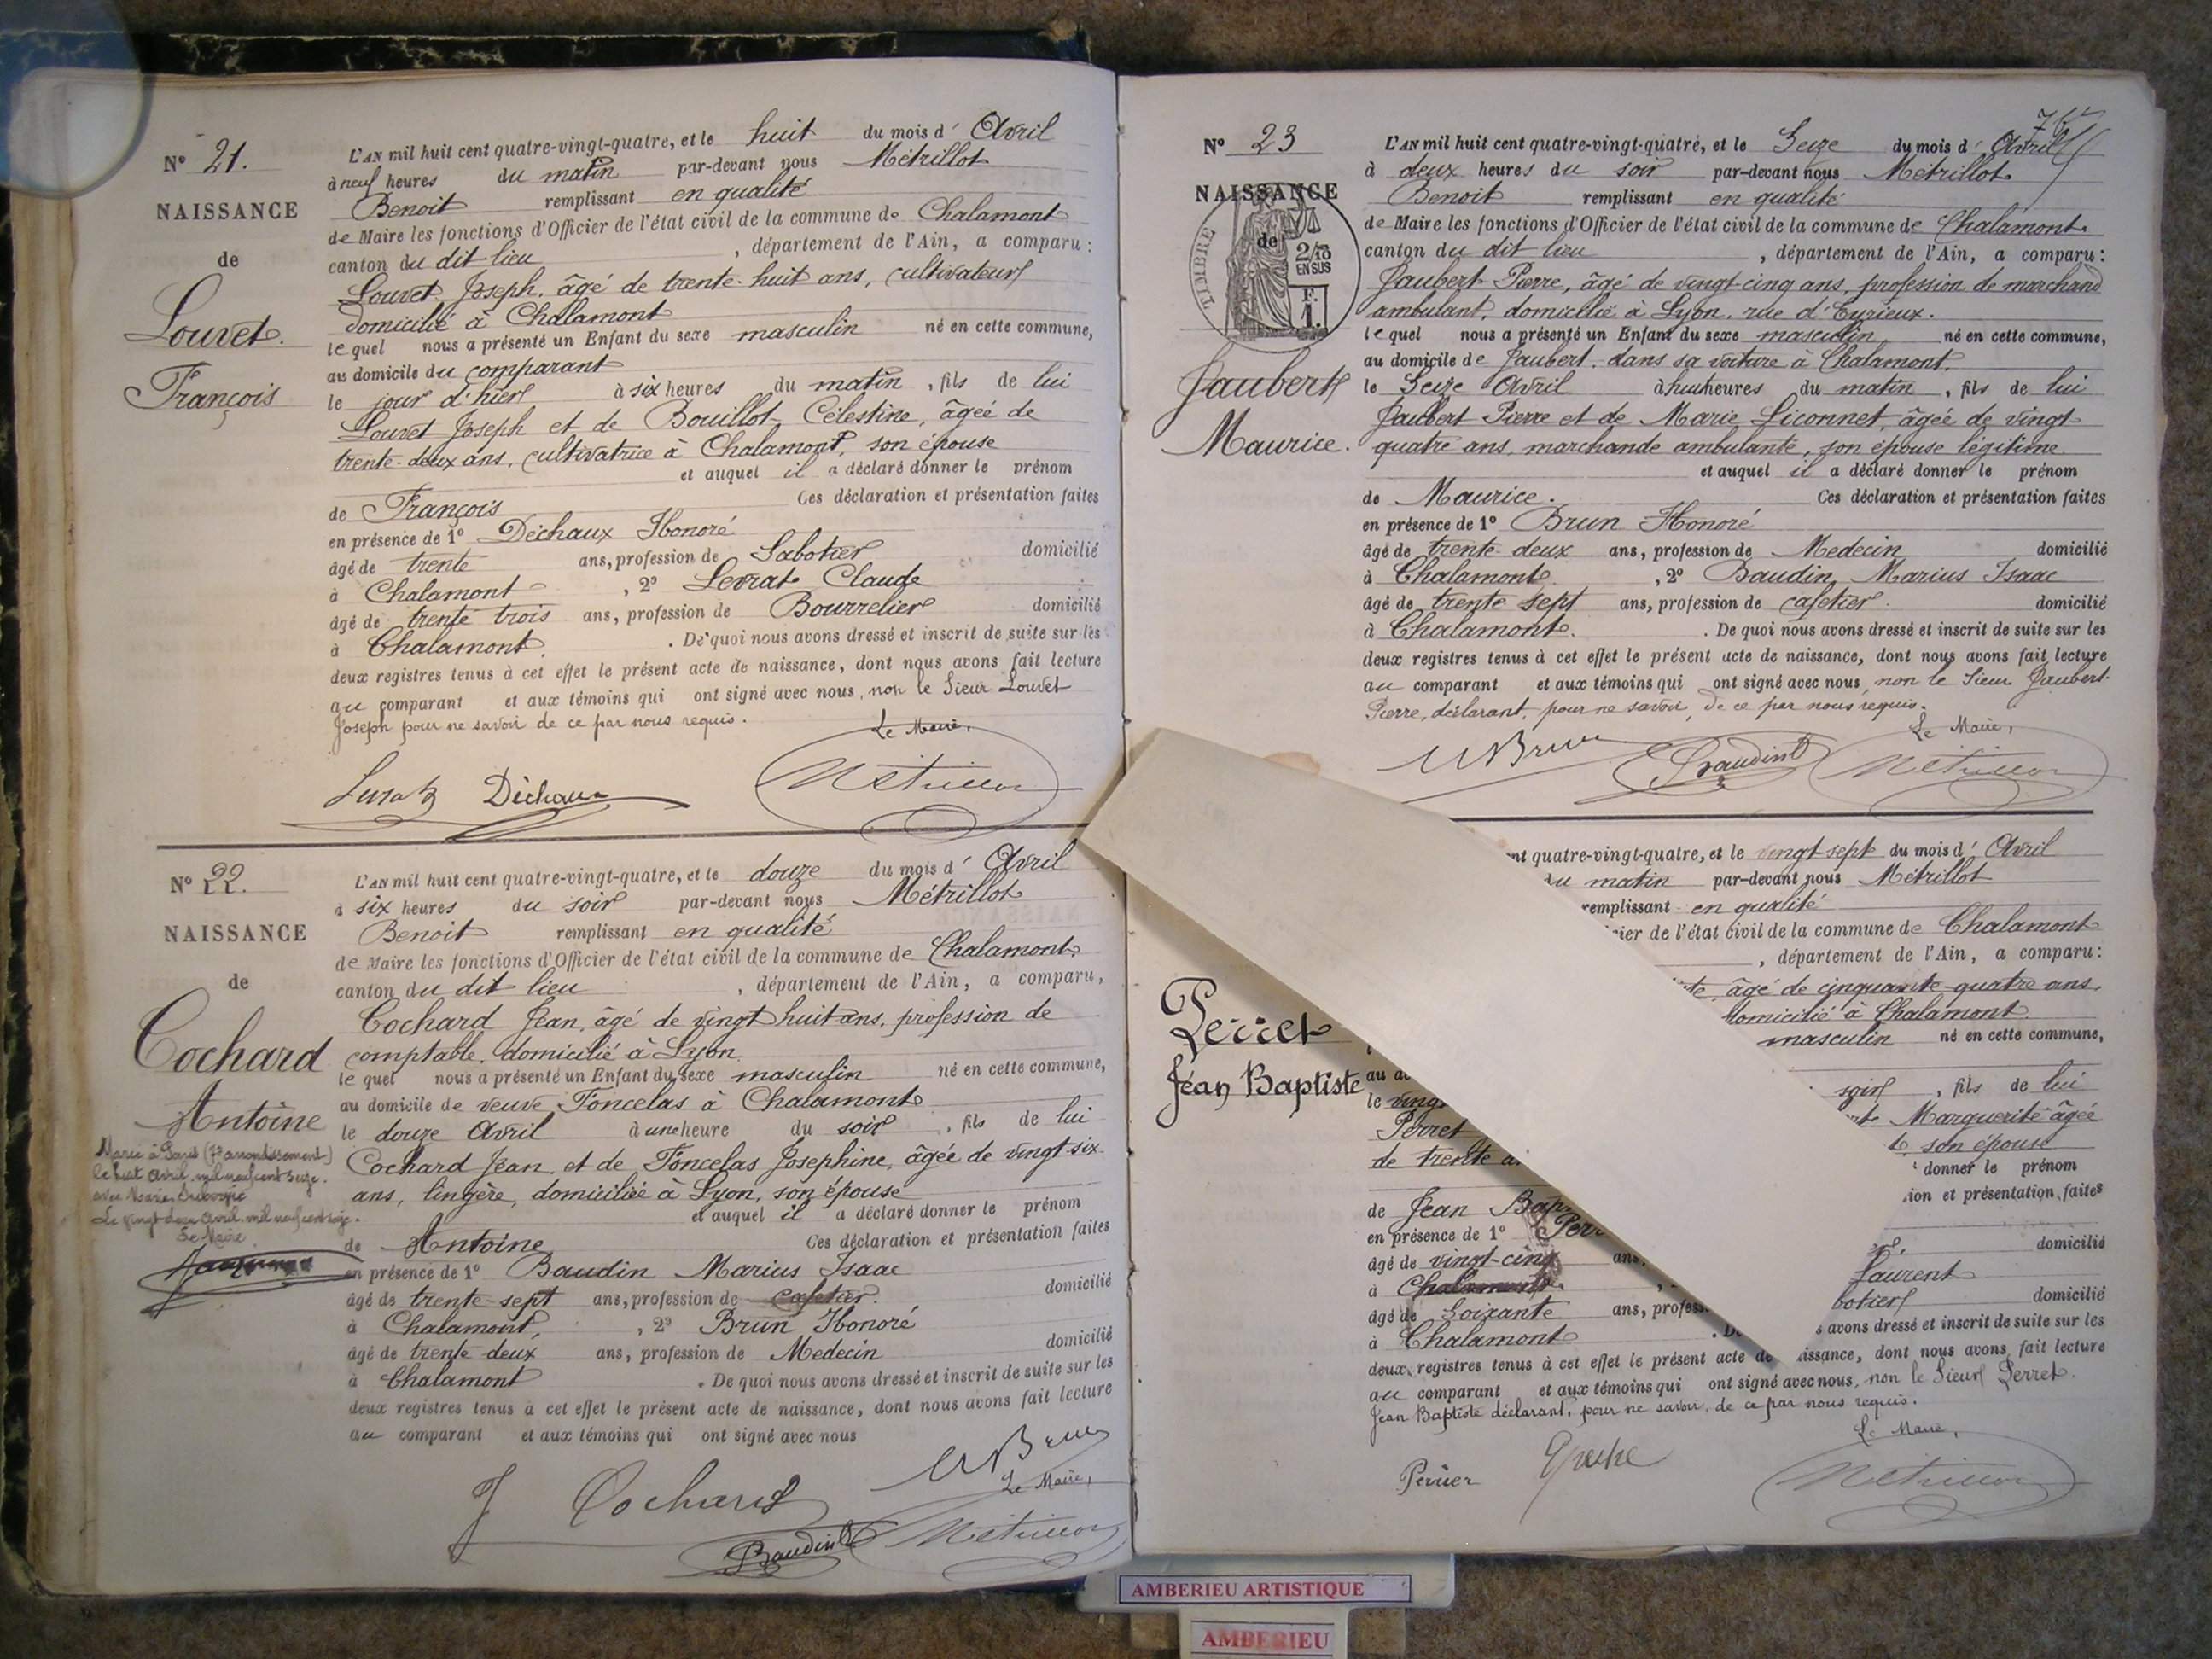 N° 21.
NAISSANCE
de
Louvet
François
L'AN mil huit cent quatre-vingt-quatre, et le huit du mois d' Avril
à neuf heures du matin par-devant nous Métrillot
Benoit remplissant en qualité
de Maire les fonctions d'Officier de l'état civil de la commune de Chalamont
canton du dit lieu , département de l'Ain, a comparu :
Louvet Joseph, âgé de trente-huit ans, cultivateur
domicilié à Chalamont
lequel nous a présenté un Enfant du sexe masculin né en cette commune,
au domicile du comparant
le jour d'hier à six heures du matin , fils de lui
Louvet Joseph et de Bouillot Célestine, âgée de
trente-deux ans, cultivatrice à Chalamont, son épouse
et auquel il a déclaré donner le prénom
de François Ces déclaration et présentation faites
en présence de 1° Déchaux Honoré
âgé de trente ans, profession de Sabotier domicilié
à Chalamont , 2° Levrat Claude
âgé de trente trois ans, profession de Bourrelier domicilié
à Chalamont . De quoi nous avons dressé et inscrit de suite sur les
deux registres tenus à cet effet le présent acte de naissance, dont nous avons fait lecture
au comparant et aux témoins qui ont signé avec nous, non le Sieur Louvet
Joseph pour ne savoir de ce par nous requis.
Le Maire,
Déchaux
Métrillot
N° 22.
NAISSANCE
de
Cochard
Antoine
Marié à Paris (7e arrondissement)
le huit Avril mil neuf cent seize.
avec Maria
Le vingt deux Avril mil neuf cent seize.
Le Maire
L'AN mil huit cent quatre-vingt-quatre, et le douze du mois d' Avril
à six heures du soir par-devant nous Métrillot
Benoit remplissant en qualité
de Maire les fonctions d'Officier de l'état civil de la commune de Chalamont
canton du dit lieu , département de l'Ain, a comparu,
Cochard Jean, âgé de vingt huit ans, profession de
comptable, domicilié à Lyon
lequel nous a présenté un Enfant du sexe masculin né en cette commune,
au domicile de veuve Foncelas à Chalamont
le douze Avril à une heure du soir , fils de lui
Cochard Jean et de Foncelas Josephine, âgée de vingt-six
ans, lingère, domiciliée à Lyon, son épouse
et auquel il a déclaré donner le prénom
de Antoine Ces déclaration et présentation faites
en présence de 1° Baudin Marius Isaac
âgé de trente-sept ans, profession de cafetier. domicilié
à Chalamont, , 2° Brun Honoré
âgé de trente deux ans, profession de Medecin domicilié
à Chalamont . De quoi nous avons dressé et inscrit de suite sur les
deux registres tenus à cet effet le présent acte de naissance, dont nous avons fait lecture
au comparant et aux témoins qui ont signé avec nous
Brun
Le Maire,
J Cochard
Baudin
Métrillot
N° 23
NAISSANCE
de
TIMBRE
2/10
EN SUS
F.
1.
Jaubert
Maurice.
L'AN mil huit cent quatre-vingt-quatre, et le Seize du mois d' Avril
à deux heures du soir par-devant nous Métrillot
Benoit remplissant en qualité
de Maire les fonctions d'Officier de l'état civil de la commune de Chalamont
canton du dit lieu , département de l'Ain, a comparu :
Jaubert Pierre, âgé de vingt-cinq ans, profession de marchand
ambulant, domicilié à Lyon, rue d'Eyrieux.
lequel nous a présenté un Enfant du sexe masculin né en cette commune,
au domicile de Jaubert dans sa voiture à Chalamont
le Seize Avril à huit heures du matin , fils de lui
Jaubert Pierre et de Marie Liconnet, âgée de vingt
quatre ans, marchande ambulante, son épouse légitime
et auquel il a déclaré donner le prénom
de Maurice. Ces déclaration et présentation faites
en présence de 1° Brun Honoré
âgé de trente deux ans, profession de Medecin domicilié
à Chalamont , 2° Baudin, Marius Isaac
âgé de trente sept ans, profession de cafetier. domicilié
à Chalamont. . De quoi nous avons dressé et inscrit de suite sur les
deux registres tenus à cet effet le présent acte de naissance, dont nous avons fait lecture
au comparant et aux témoins qui ont signé avec nous, non le Sieur Jaubert
Pierre, déclarant, pour ne savoir, de ce par nous requis.
Le Maire,
Brun
Baudin
Métrillot
Perret
Jean Baptiste
nt quatre-vingt-quatre, et le vingt sept du mois d' Avril
du matin par-devant nous Métrillot
remplissant en qualité
cier de l'état civil de la commune de Chalamont
, département de l'Ain, a comparu :
te, âgé de cinquante-quatre ans,
domicilié à Chalamont
masculin né en cette commune,
au do
soir , fils de lui
le vingt
Marguerite âgée
Perret
son épouse
de trente a
donner le prénom
ion et présentation faites
de Jean Bap
en présence de 1° Perr
domicilié
âgé de vingt-cinq ans,
Laurent
à Chalamont
botier domicilié
âgé de Soixante ans, profess
s avons dressé et inscrit de suite sur les
à Chalamont . De
deux registres tenus à cet effet le présent acte de issance, dont nous avons fait lecture
au comparant et aux témoins qui ont signé avec nous, non le Sieur Perret
Jean Baptiste déclarant, pour ne savoir, de ce par nous requis.
Le Maire,
Perrier
Métrillot
AMBERIEU ARTISTIQUE
AMBERIEU